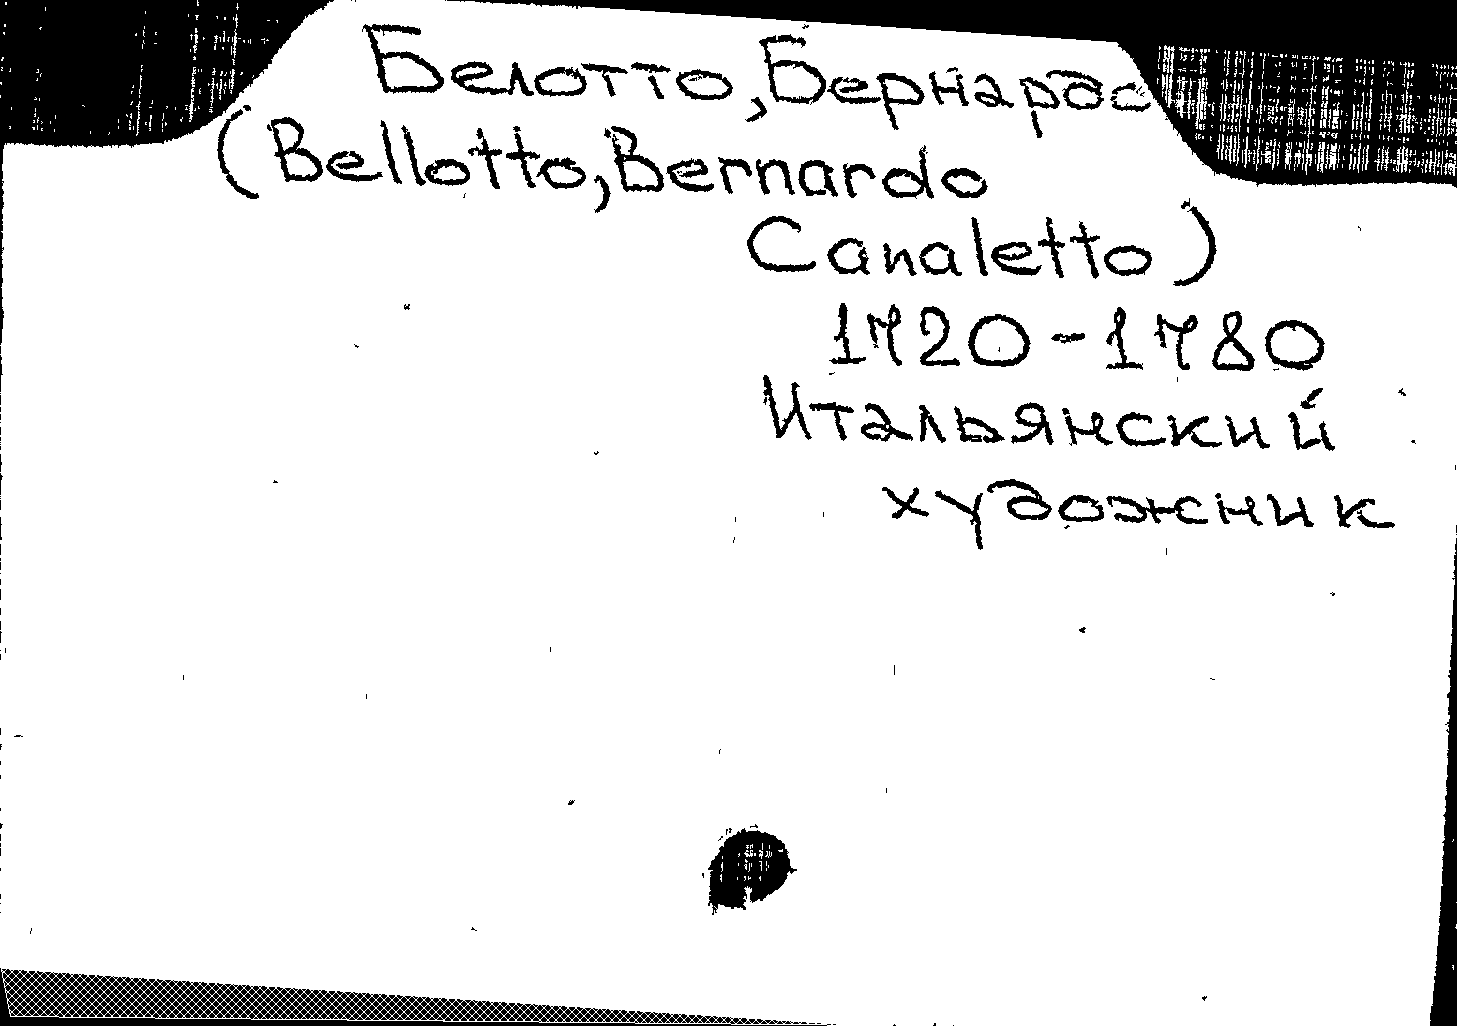 Белотто, Бернардо
(Bellotto, Bernardo
Canaletto)
1720-1780
Итальянский
художник